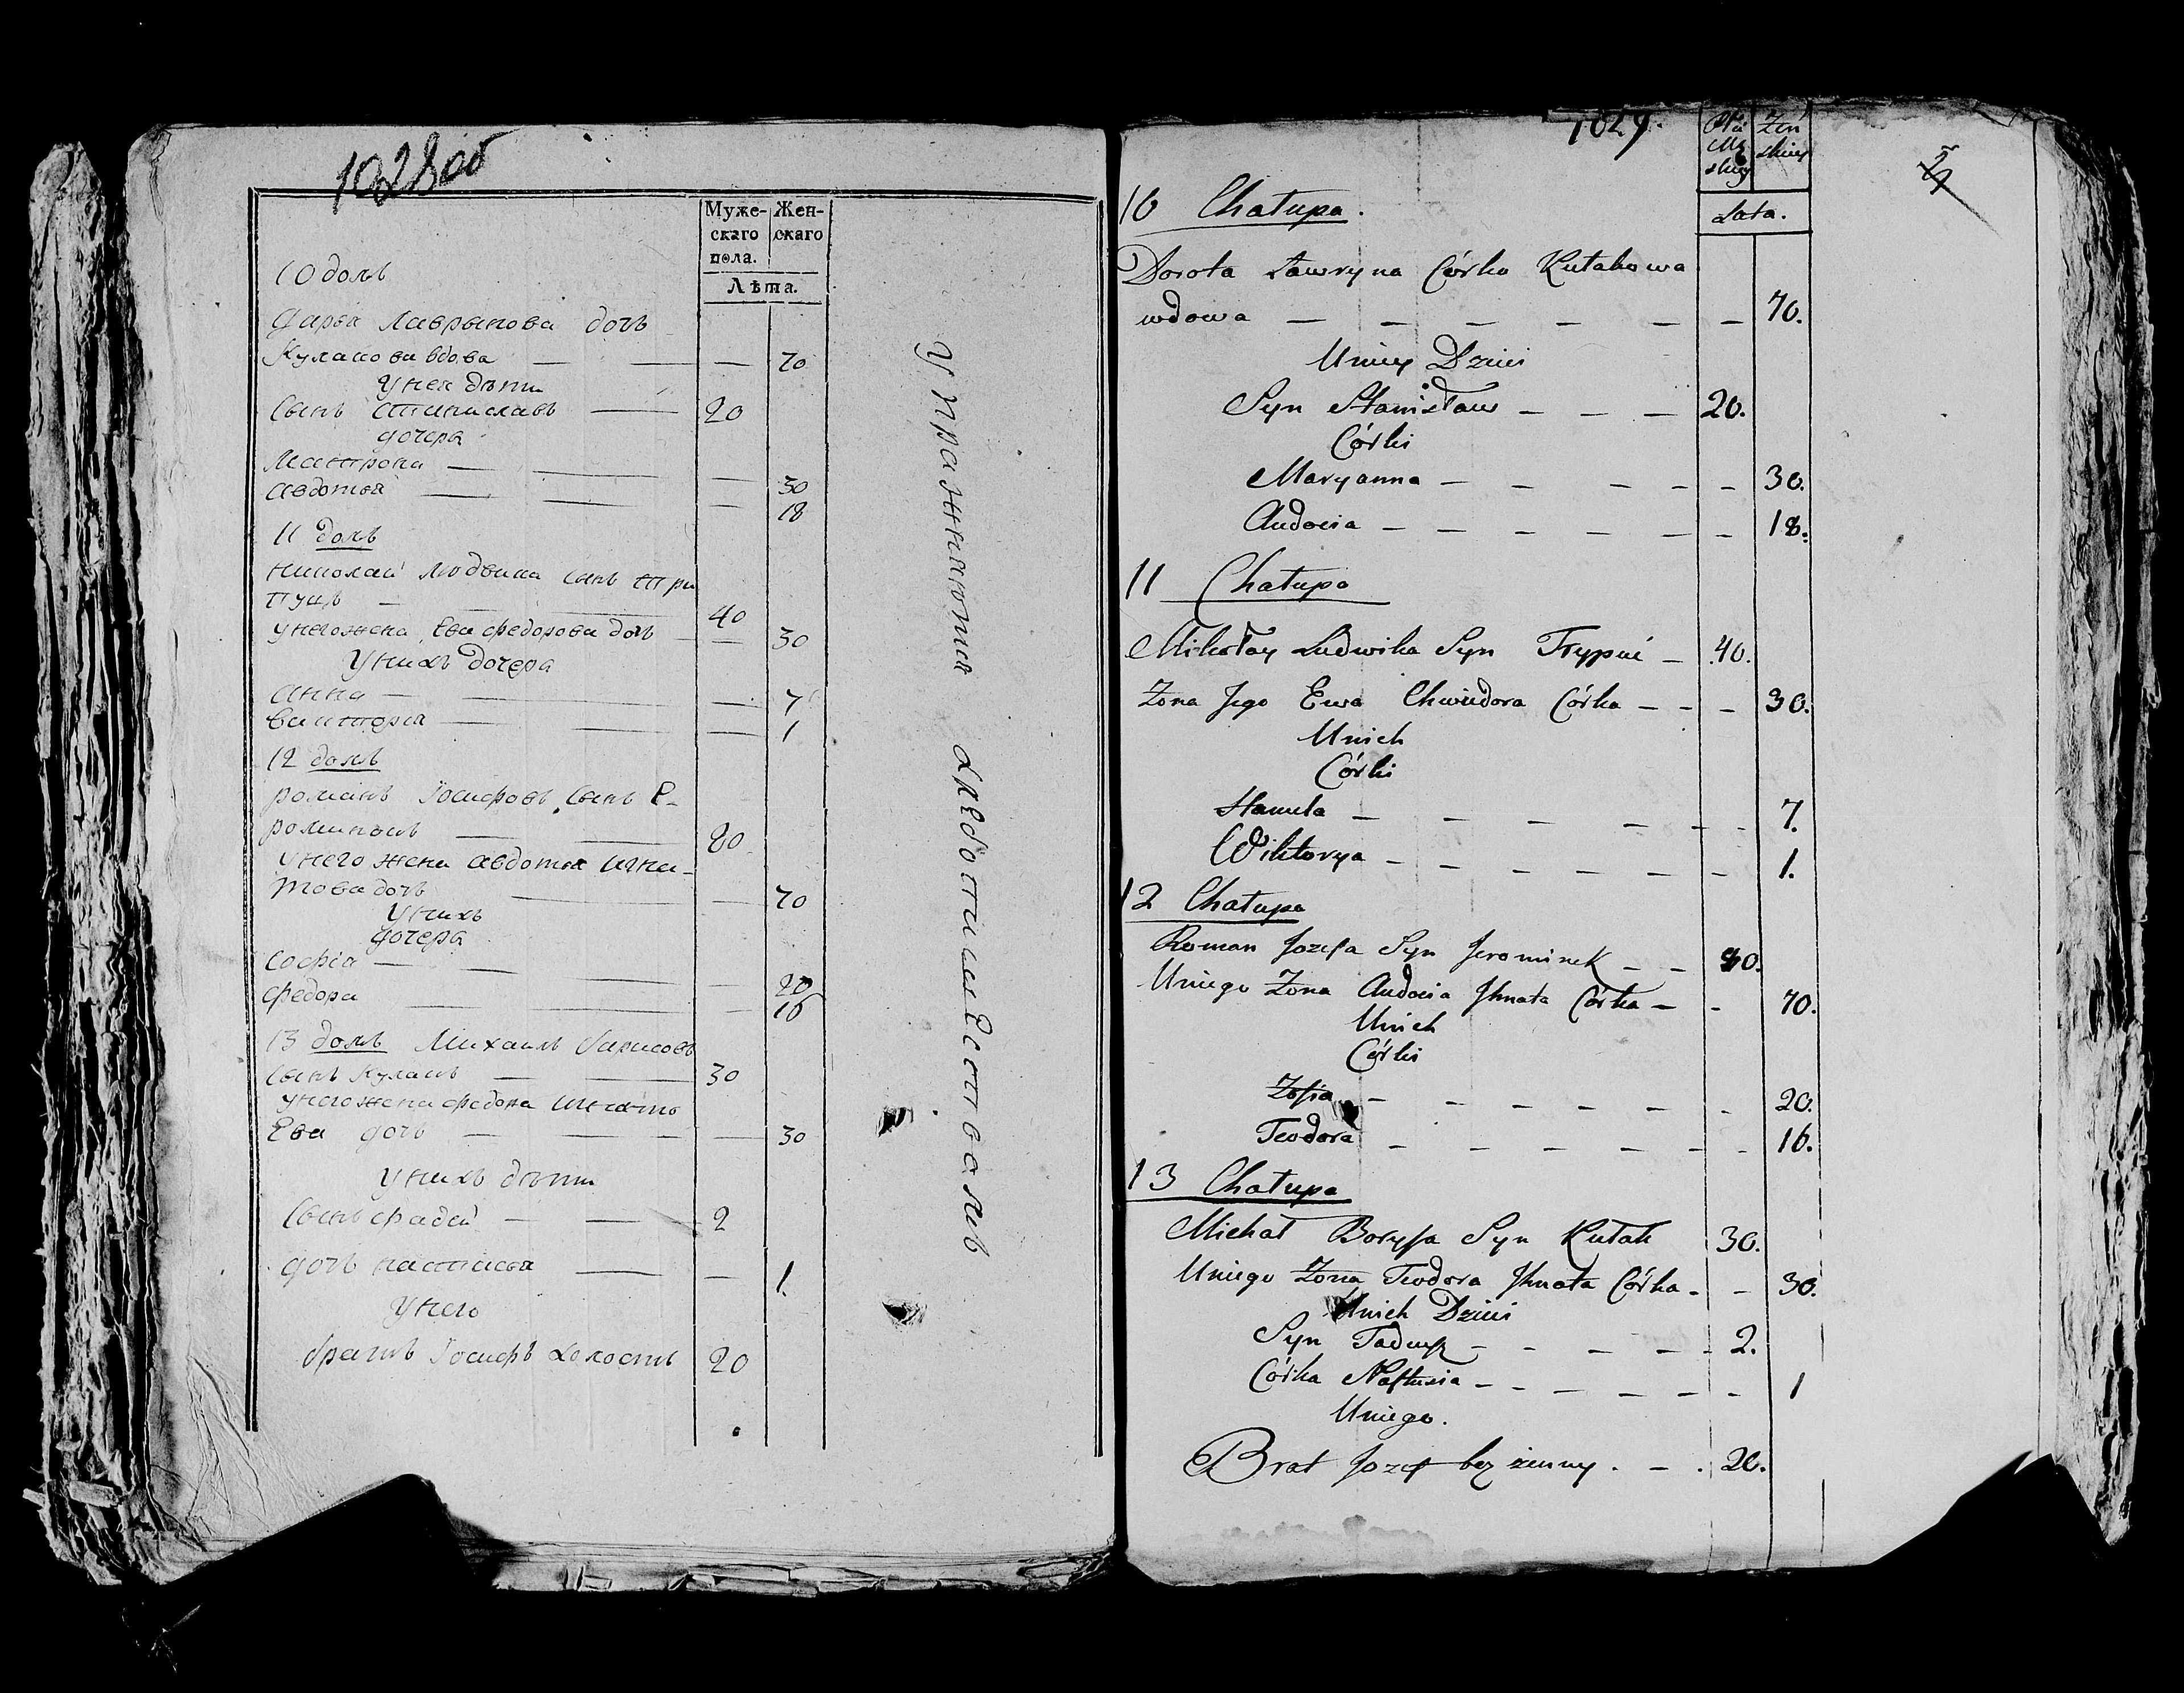 1028 об
Муже- Жен-
скаго скаго
пола.
Лѣта.
10 домъ
Дарья Лаврынова дочь
Кулакова вдова — — — 70
У нея дѣти
Сынъ Станиславъ — 20
дочера
Матрона — — — 30
Авдотья — — — 18
11 домъ
Николай Людвика сынъ Три
пуцъ — — — 40
у него жена Ева Федорова дочь — — 30
У нихъ дочера
Анна — — — 7
Викторія — — — 1
12 домъ
Романъ Іосифовъ сынъ Е-
роминокъ — — 80
У него жена Авдотья Игна-
това дочь — — 70
У нихъ
дочера
Софія — — — 20
Федора — — — 16
13 домъ Михаилъ Барисовъ
сынъ Кулакъ — — 30
у него жена Федора Игнато
Ева дочь — — — — 30
У нихъ дѣти
Сынъ Фадей — — 2
дочь Настасья — — 1.
У него
братъ Іосифъ холостъ 20
Упражняются хлебопашествомъ
1029.
Płci Żeń
Mę skiey
skiey
Lata.
10 Chałupa.
Dorota Ławryna Córka Kułakowa
wdowa — — — — — — 70.
U niey Dzieci
Syn Stanisław — — — 20.
Córki
Maryanna — — — — — 30.
Audocia — — — — — — 18.
11 Chałupa
Mikołay Ludwika Syn Trypuć — 40.
Żona Jego Ewa Chwiedora Córka — — — 30.
U nich
Córki
Hanula — — — — — — 7.
Wiktorya — — — — — — — 1.
12 Chałupa
Roman Jozefa Syn Jerominek — — 80.
U niego Żona Audocia Jhnata Córka — — 70.
U nich
Córki
Zofia — — — — — — 20.
Teodora — — — — — — 16.
13 Chałupa
Michał Borysa Syn Kułak 30.
U niego Żona Teodora Jhnata Córka — — 30.
U nich Dzieci
Syn Tadeusz — — — — — 2.
Córka Nastusia — — — — — — — 1
U niego.
Brat Jozef bez żenny . — . 20.